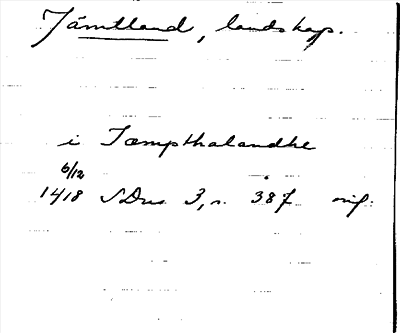 Jämtland, landskap.
i Jæmpthalandhe
6/12
1418 SDns 3, s. 387 orig.